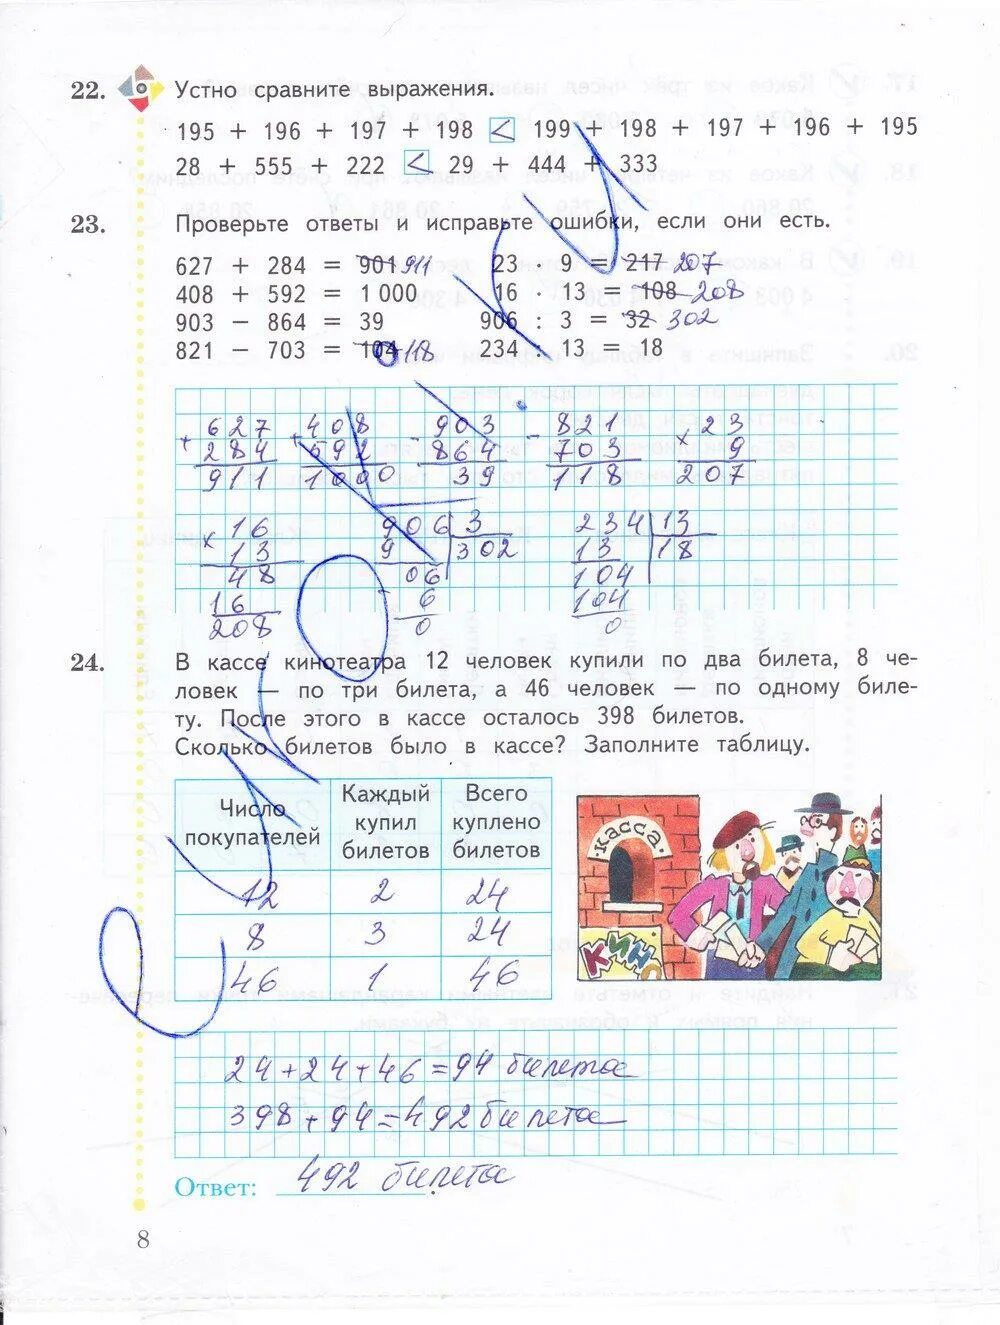 22. Устно сравните выражения.
195 + 196 + 197 + 198 < 199 + 198 + 197 + 196 + 195
28 + 555 + 222 < 29 + 444 + 333
23. Проверьте ответы и исправьте ошибки, если они есть.
627 + 284 = 901 911 23 · 9 = 217 207
408 + 592 = 1 000 16 · 13 = 108 208
903 − 864 = 39 906 : 3 = 32 302
821 − 703 = 104 118 234 : 13 = 18
627 408 903 821 23
+ 284 + 592 - 864 - 703 × 9
911 1000 39 118 207
16 906 3 234 13
× 13 9 302 13 18
48 06 104
16 6 104
208 0 0
24. В кассе кинотеатра 12 человек купили по два билета, 8 че-
ловек — по три билета, а 46 человек — по одному биле-
ту. После этого в кассе осталось 398 билетов.
Сколько билетов было в кассе? Заполните таблицу.
Число покупателей Каждый купил билетов Всего куплено билетов
12 2 24
8 3 24
46 1 46
касса
кино
24 + 24 + 46 = 94 билета
398 + 94 = 492 билета
Ответ: 492 билета.
8
e-uroki.ru